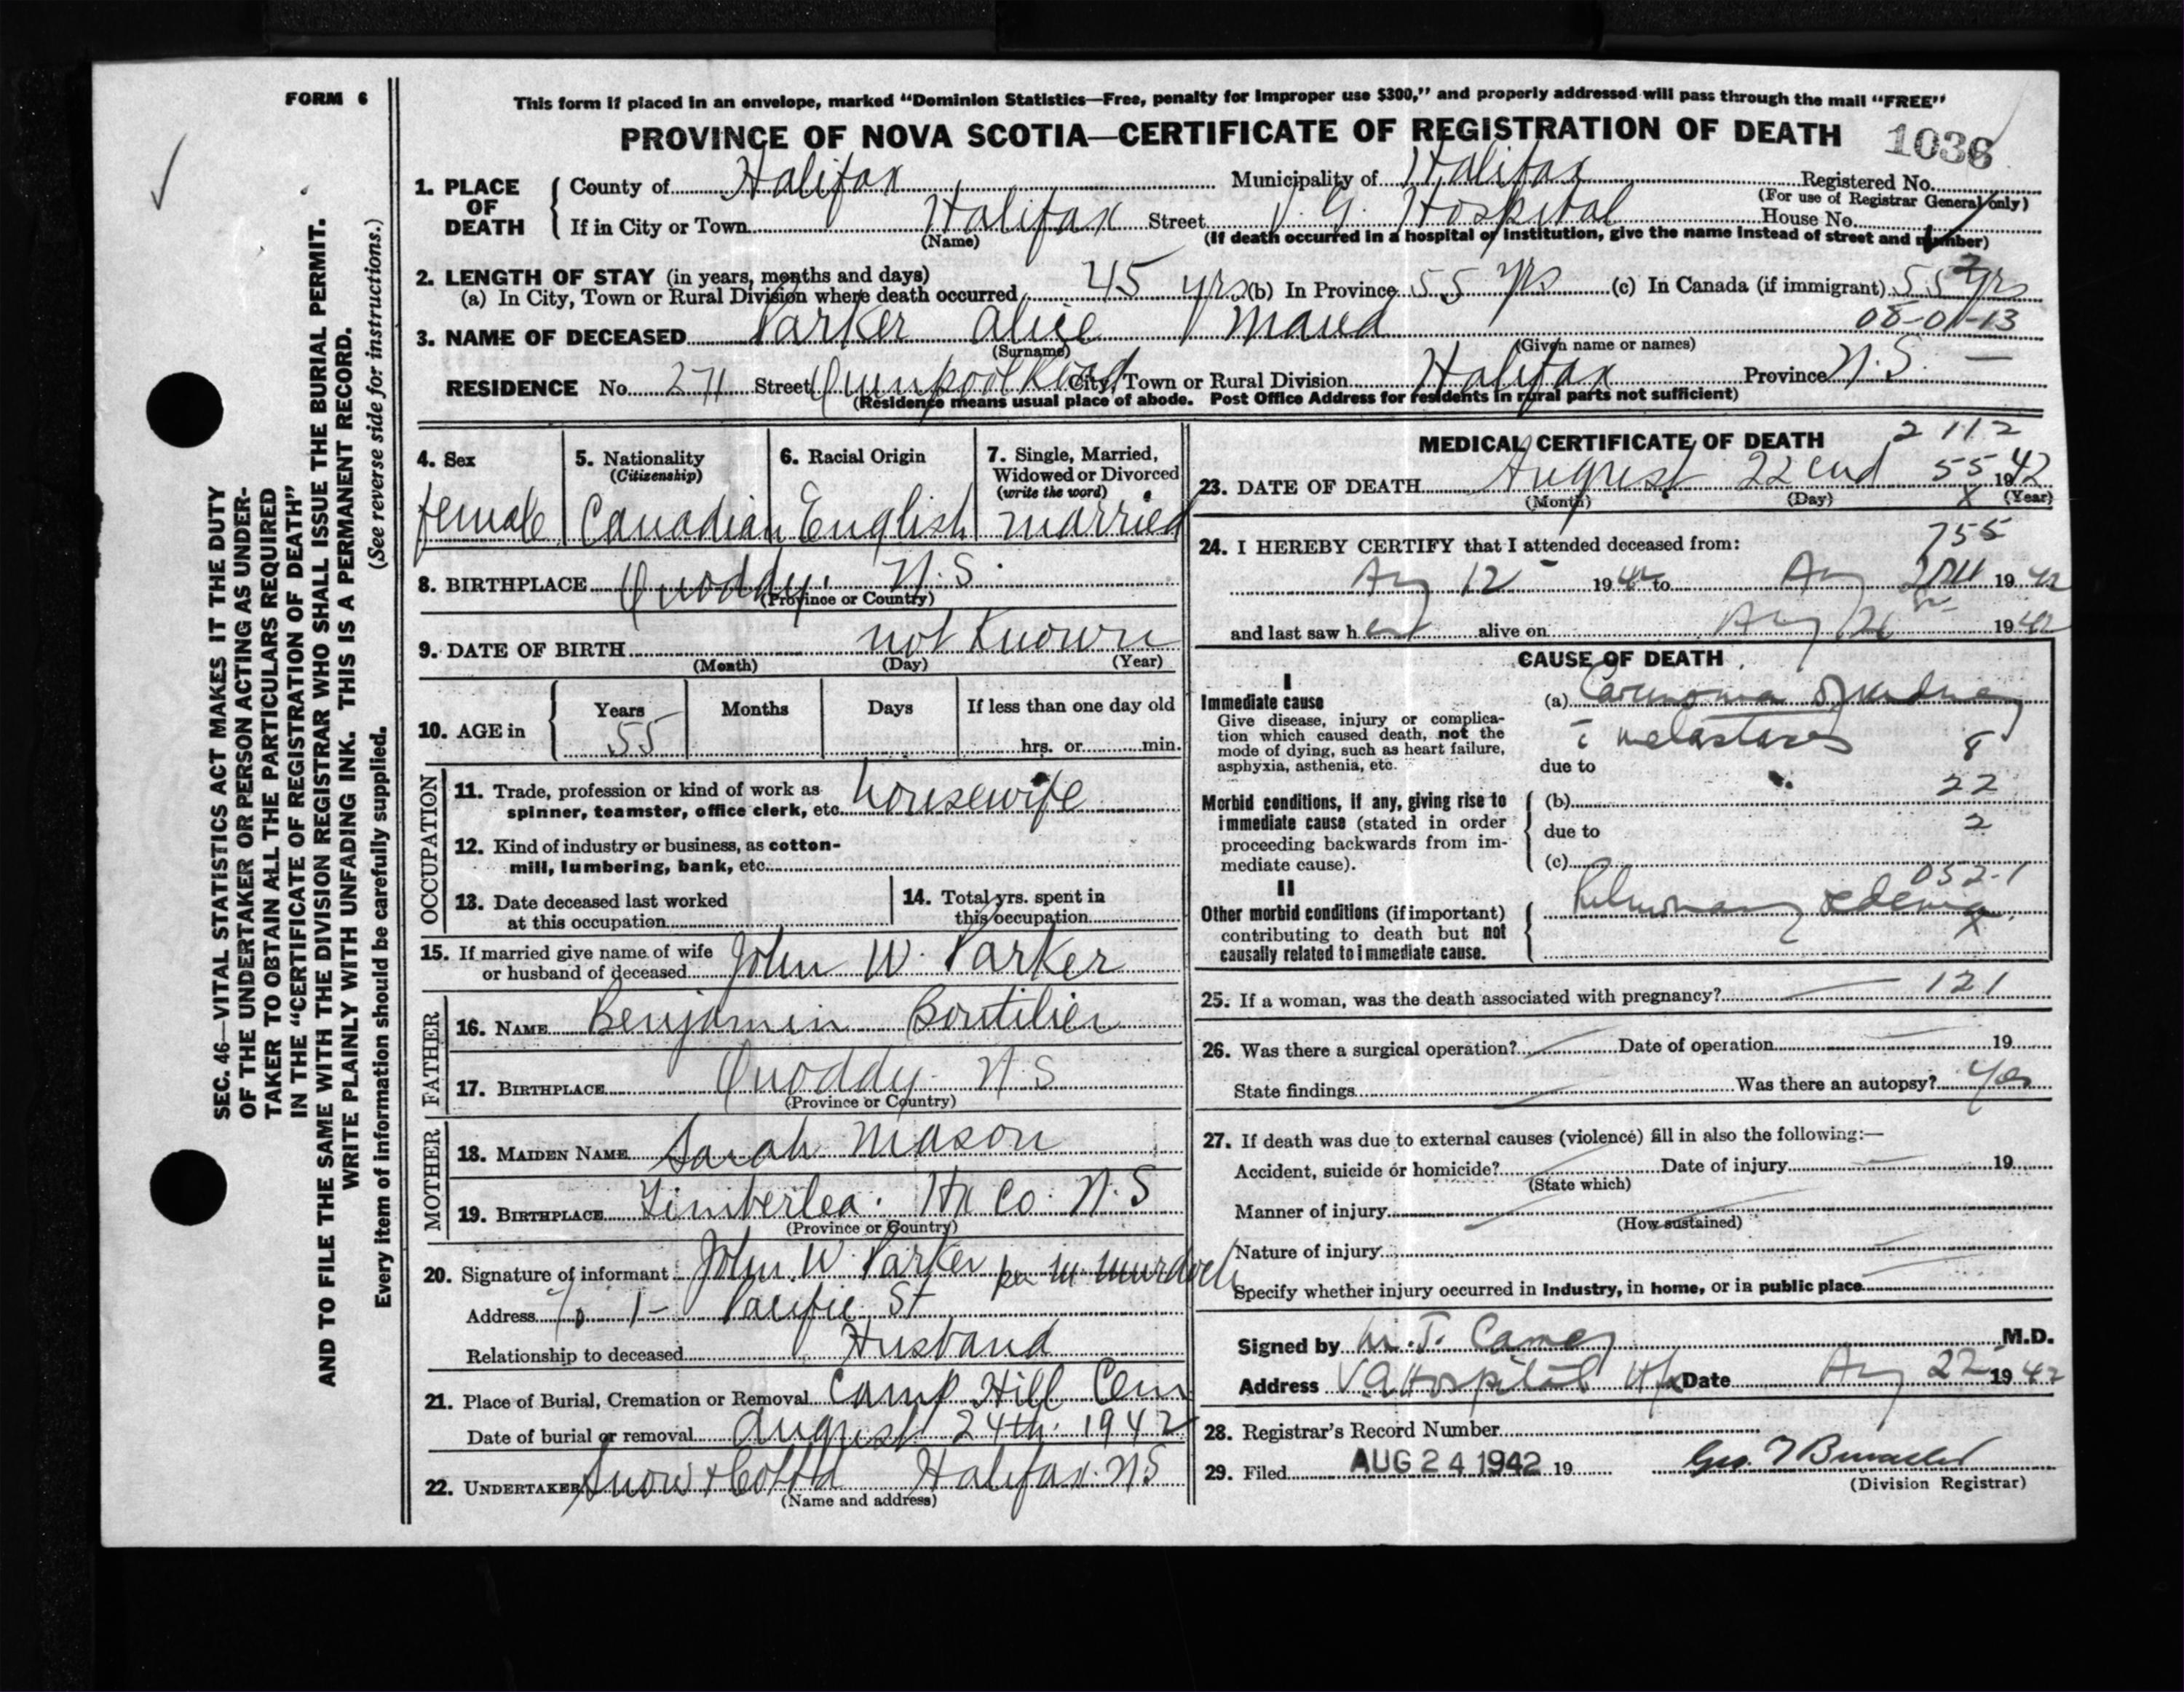 FORM 6
This form if placed in an envelope, marked "Dominion Statistics—Free, penalty for improper use $300," and properly addressed will pass through the mail "FREE"
PROVINCE OF NOVA SCOTIA—CERTIFICATE OF REGISTRATION OF DEATH 1036
1. PLACE OF DEATH County of Halifax Municipality of Halifax Registered No.
(For use of Registrar General only)
If in City or Town Halifax Street V. G. Hospital House No.
(Name) (If death occurred in a hospital or institution, give the name instead of street and number)
2. LENGTH OF STAY (in years, months and days)
(a) In City, Town or Rural Division where death occurred 45 yrs (b) In Province 55 yrs (c) In Canada (if immigrant) 55 yrs
3. NAME OF DECEASED Parker Alice Maud 08-01-13
(Surname) (Given name or names)
RESIDENCE No. 271 Street Quinpool Road City, Town or Rural Division Halifax Province N.S. —
(Residence means usual place of abode. Post Office Address for residents in rural parts not sufficient)
4. Sex female
5. Nationality (Citizenship) Canadian
6. Racial Origin English
7. Single, Married, Widowed or Divorced (write the word) married
8. BIRTHPLACE Quoddy, N.S.
(Province or Country)
9. DATE OF BIRTH not Known
(Month) (Day) (Year)
10. AGE in Years 55 Months Days If less than one day old
hrs. or min.
OCCUPATION
11. Trade, profession or kind of work as spinner, teamster, office clerk, etc. housewife
12. Kind of industry or business, as cotton-mill, lumbering, bank, etc.
13. Date deceased last worked at this occupation
14. Total yrs. spent in this occupation
15. If married give name of wife or husband of deceased John W. Parker
FATHER
16. NAME Benjamin Boutilier
17. BIRTHPLACE Quoddy N.S
(Province or Country)
MOTHER
18. MAIDEN NAME Sarah Mason
19. BIRTHPLACE Timberlea. Hx Co. N.S
(Province or Country)
20. Signature of informant John W Parker per M Murdoch
Address 1- Pacific St
Relationship to deceased Husband
21. Place of Burial, Cremation or Removal Camp Hill Cem
Date of burial or removal August 24th. 1942
22. UNDERTAKER Snow & Co Ltd Halifax. NS
(Name and address)
MEDICAL CERTIFICATE OF DEATH 2112
23. DATE OF DEATH August 22end 55 1942
(Month) (Day) X (Year)
24. I HEREBY CERTIFY that I attended deceased from: 755
Aug 12 1942 to Aug 1942
and last saw her alive on Aug 1942
CAUSE OF DEATH
I
Immediate cause
Give disease, injury or complication which caused death, not the mode of dying, such as heart failure, asphyxia, asthenia, etc.
(a) Carcinoma of kidney
c̄ metastases 8
due to
Morbid conditions, if any, giving rise to immediate cause (stated in order proceeding backwards from immediate cause).
(b) 22
due to 2
(c)
052-1
II
Other morbid conditions (if important) contributing to death but not causally related to immediate cause.
Pulmonary edema
X
25. If a woman, was the death associated with pregnancy? — 121
26. Was there a surgical operation? — Date of operation — 19
State findings — Was there an autopsy? Yes
27. If death was due to external causes (violence) fill in also the following:—
Accident, suicide or homicide? — Date of injury — 19
(State which)
Manner of injury
(How sustained)
Nature of injury
Specify whether injury occurred in industry, in home, or in public place
Signed by M.D.
Address V G Hospital Hfx Date Aug 22 1942
28. Registrar's Record Number
29. Filed AUG 24 1942 19
(Division Registrar)
SEC. 46—VITAL STATISTICS ACT MAKES IT THE DUTY
OF THE UNDERTAKER OR PERSON ACTING AS UNDER-
TAKER TO OBTAIN ALL THE PARTICULARS REQUIRED
IN THE "CERTIFICATE OF REGISTRATION OF DEATH"
AND TO FILE THE SAME WITH THE DIVISION REGISTRAR WHO SHALL ISSUE THE BURIAL PERMIT.
WRITE PLAINLY WITH UNFADING INK. THIS IS A PERMANENT RECORD.
Every item of information should be carefully supplied. (See reverse side for instructions.)